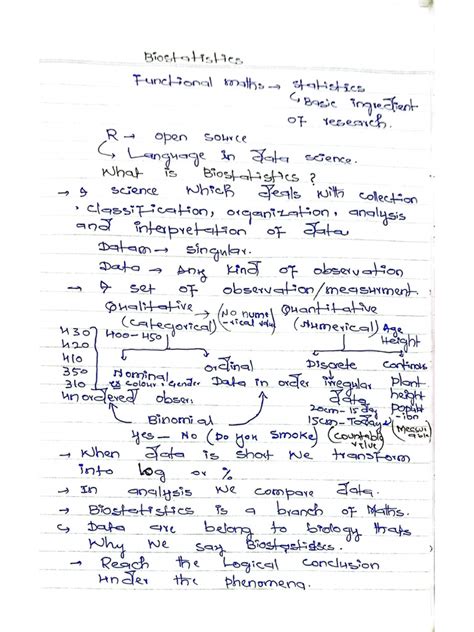 Biostatistics
Functional maths → statistics
↳ Basic ingredient
of research.
R → open source
↳ Language in data science.
What is Biostatistics ?
→ A science which deals with collection
, classification, organization, analysis
and interpretation of data
Datam → singular.
Data → Any kind of observation
→ A set of observation/measurment
Qualitative → (No nume Quantitative
(categorical) -rical value) (Numerical) Age
Height
430 400-450
420 ordinal Discrete continous
410
350 Nominal Data in order irregular plant
310 colour, Gender data height
unordered obser. 20cm-15 day populat
Binomial 15cm-Today -ion
Yes - No (Do you smoke) (countable value) (Measur able)
→ When data is short we transform
into log or %
→ In analysis we compare data.
→ Biostatistics is a branch of Maths.
↳ Data are belong to biology thats
Why we say Biostatistics.
→ Reach the Logical conclusion
under the phenomena.